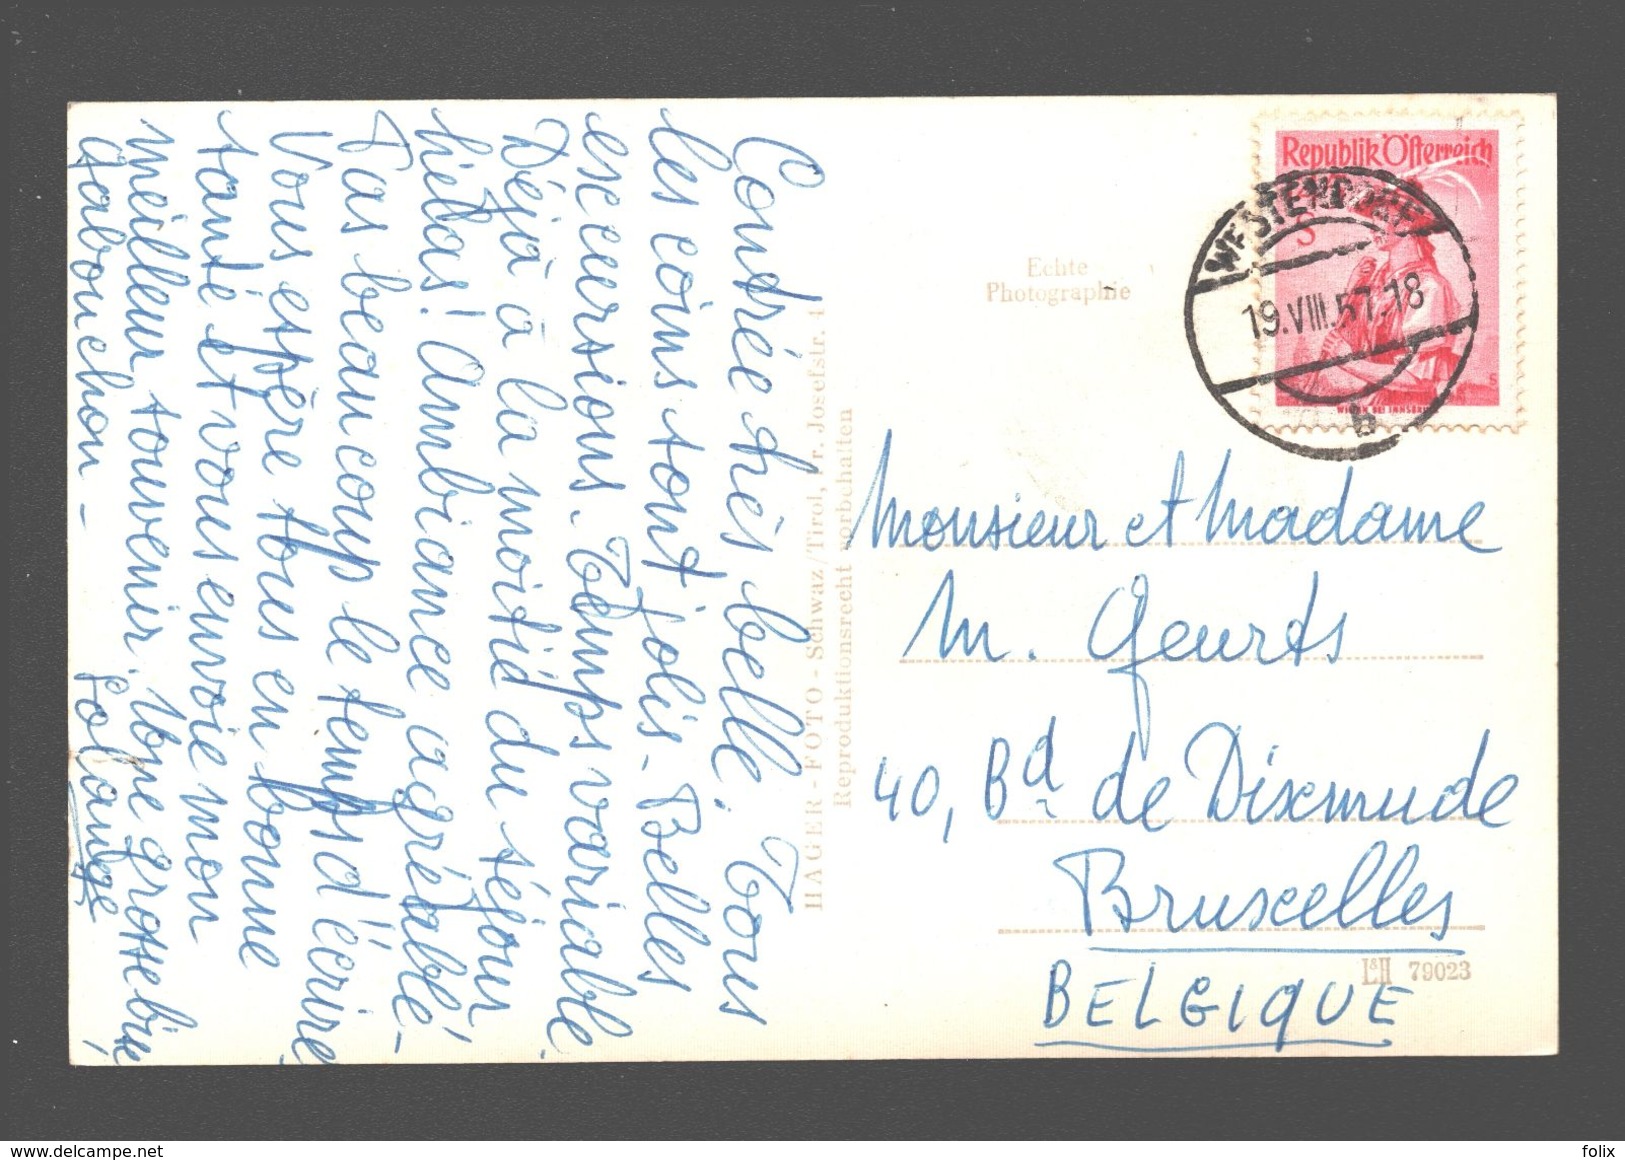 Contrée très belle. Tous
les coins sont jolis - Belles
escursions. Temps variable.
Déjà à la moitié du séjour
hélas! Ambiance agréable -
Pas beaucoup le temps d'écrire!
Vous espère tous en bonne
santé et vous envoie mon
meilleur souvenir. Une grosse bise
Gabouchon -
Solange
HAGER - FOTO - Schwaz/Tirol, Fr. Josefstr. 1
Reproduktionsrecht vorbehalten
Echte
Photographie
Republik Österreich
S
WESTENDORF
19.VIII.57.18
b
Monsieur et Madame
M. Geurts
40, Bd de Dixmude
Bruxelles
BELGIQUE
L&H 79023
folix